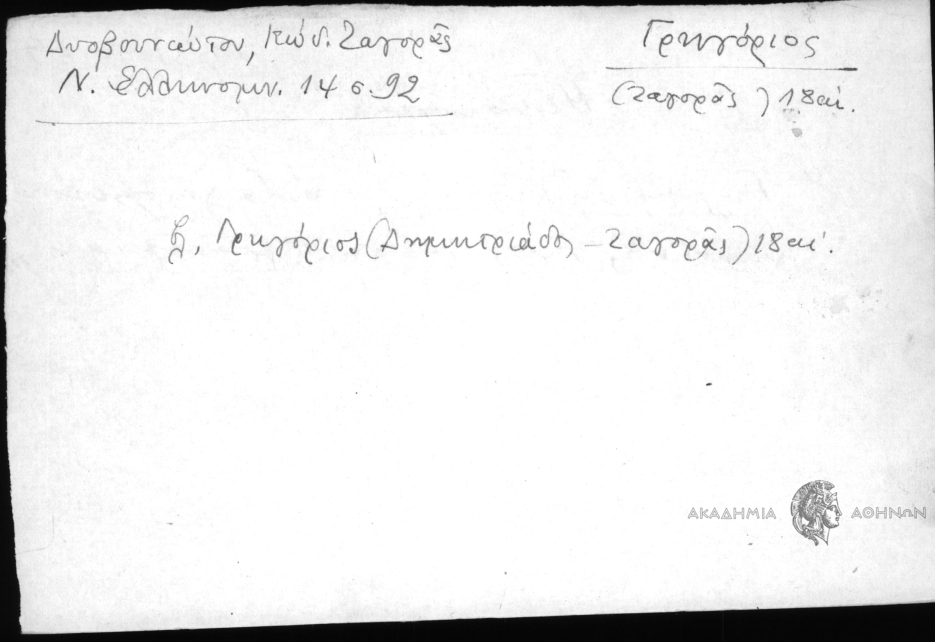 Δυοβουνιώτου, Κώδ. Ζαγορᾶς
Ν. Ελληνομν. 14 σ. 92
Γρηγόριος
(Ζαγορᾶς) 18 αἰ.
βλ. Γρηγόριος (Δημητριάδος – Ζαγορᾶς) 18 αἰ.
ΑΚΑΔΗΜΙΑ ΑΘΗΝΩΝ